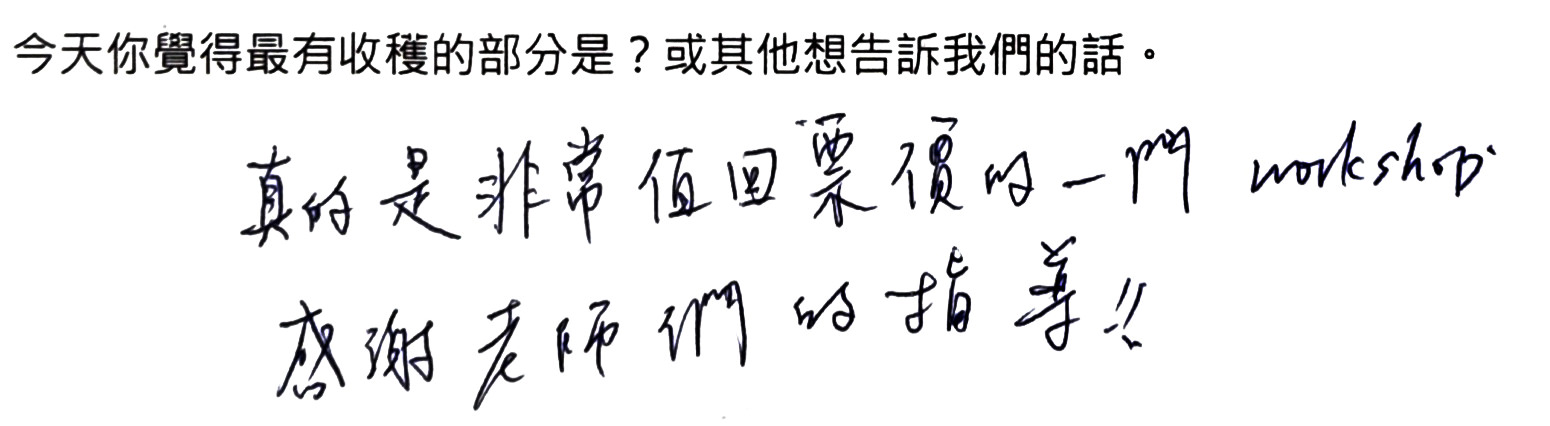 今天你覺得最有收穫的部分是？或其他想告訴我們的話。
真的是非常值回票價的一門 workshop.
感謝老師們的指導!!